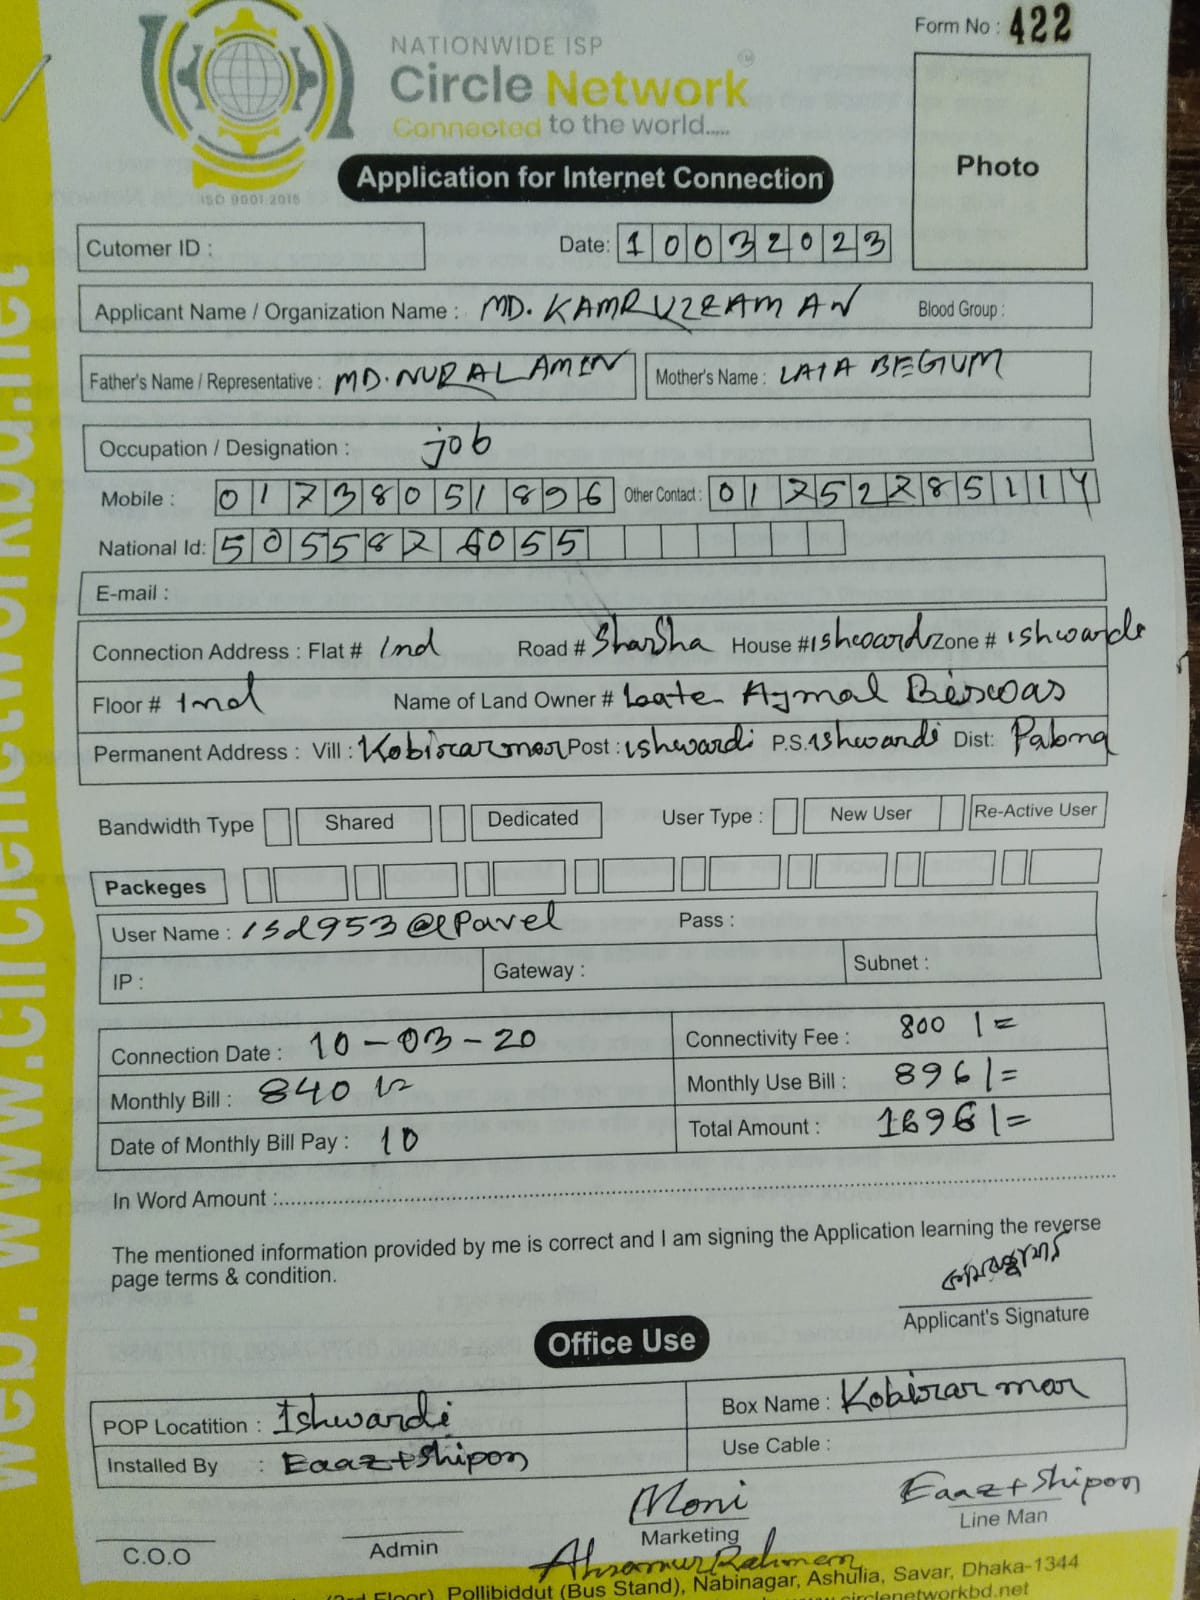 Form No : 422
NATIONWIDE ISP
Circle Network
Connected to the world.....
ISO 9001.2015
Photo
Application for Internet Connection
Cutomer ID : Date: 10032023
Applicant Name / Organization Name : MD. KAMRUZZAMAN Blood Group :
Father's Name / Representative : MD. NUR ALAMIN Mother's Name : LATA BEGUM
Occupation / Designation : job
Mobile : 01738051896 Other Contact :
National Id: 5055876055
E-mail :
Connection Address : Flat # 1nd Road # Sharsha House # ishwardi Zone # ishwardi
Floor # 1nd Name of Land Owner # Laate Ajmal Biswas
Permanent Address : Vill : Kobirarmor Post : ishwardi P.S. ishwardi Dist: Pabna
Bandwidth Type Shared Dedicated User Type : New User Re-Active User
Packeges
User Name : isd953@pavel Pass :
IP : Gateway : Subnet :
Connection Date : 10-03-20 Connectivity Fee : 800/=
Monthly Bill : 840/= Monthly Use Bill : 896/=
Date of Monthly Bill Pay : 10 Total Amount : 1696/=
In Word Amount :
The mentioned information provided by me is correct and I am signing the Application learning the reverse
page terms & condition.
Applicant's Signature
Office Use
POP Locatition : Ishwardi Box Name : Kobirar mor
Installed By : Eaaz+Shipon Use Cable :
Moni Eaaz+Shipon
C.O.O Admin Marketing Line Man
Ahsanur Rahman
Floor), Pollibiddut (Bus Stand), Nabinagar, Ashulia, Savar, Dhaka-1344
circlenetworkbd.net
web: www.circlenetworkbd.net